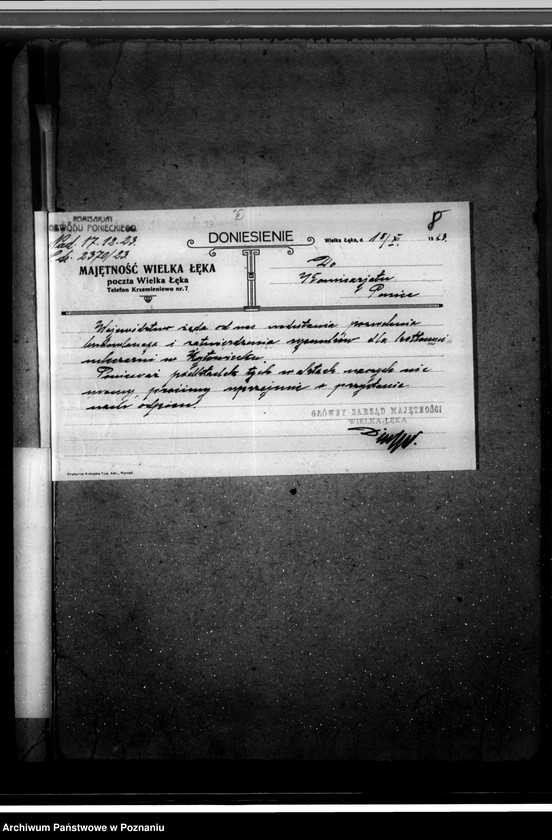 8
KOMISARJAT
OBWÓDU PONIECKIEGO
Nad. 17.12.23.
2370/23
DONIESIENIE
Wielka Łęka, d. 15/XI 1923.
MAJĘTNOŚĆ WIELKA ŁĘKA
poczta Wielka Łęka
Telefon Krzemieniewo nr. 7
Do
Komisarjatu
Poniec
Województwo żąda od nas nadesłania pozwolenia
budowlanego i zatwierdzenia rysunków dla kotłowni
mleczarni w
Ponieważ tych w aktach naszych nie
mamy, prosimy uprzejmie o przysłanie
nam odpisu.
GŁÓWNY ZARZĄD MAJĘTNOŚCI
WIELKA-ŁĘKA
Archiwum Państwowe w Poznaniu